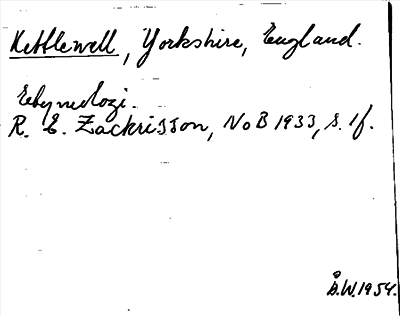 Kettlewell, Yorkshire, England.
Etymologi.
R. E. Zachrisson, NoB 1933, s. 1f.
Å.W. 1954.